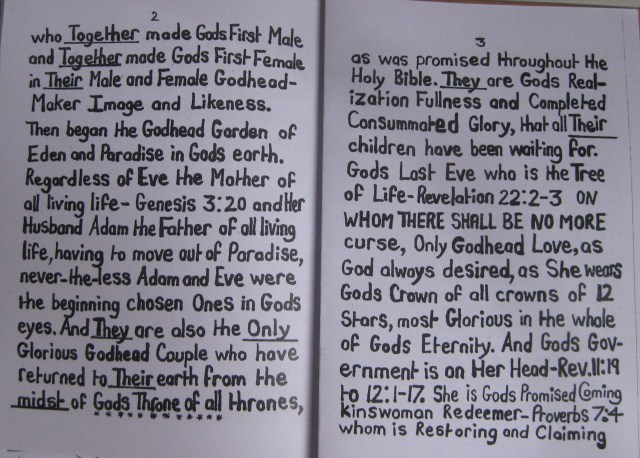 2
who Together made Gods First Male
and Together made Gods First Female
in Their Male and Female Godhead-
Maker Image and Likeness.
Then began the Godhead Garden of
Eden and Paradise in Gods earth.
Regardless of Eve the Mother of
all living life- Genesis 3:20 and Her
Husband Adam the Father of all living
life, having to move out of Paradise,
never-the-less Adam and Eve were
the beginning chosen Ones in Gods
eyes. And They are also the Only
Glorious Godhead Couple who have
returned to Their earth from the
midst of Gods Throne of all thrones,
3
as was promised throughout the
Holy Bible. They are Gods Real-
ization Fullness and Completed
Consummated Glory, that all Their
children have been waiting for.
Gods Last Eve who is the Tree
of Life-Revelation 22:2-3 ON
WHOM THERE SHALL BE NO MORE
curse, Only Godhead Love, as
God always desired, as She wears
Gods Crown of all crowns of 12
Stars, most Glorious in the whole
of Gods Eternity. And Gods Gov-
ernment is on Her Head-Rev.11:19
to 12:1-17. She is Gods Promised Coming
kinswoman Redeemer-Proverbs 7:4
whom is Restoring and Claiming